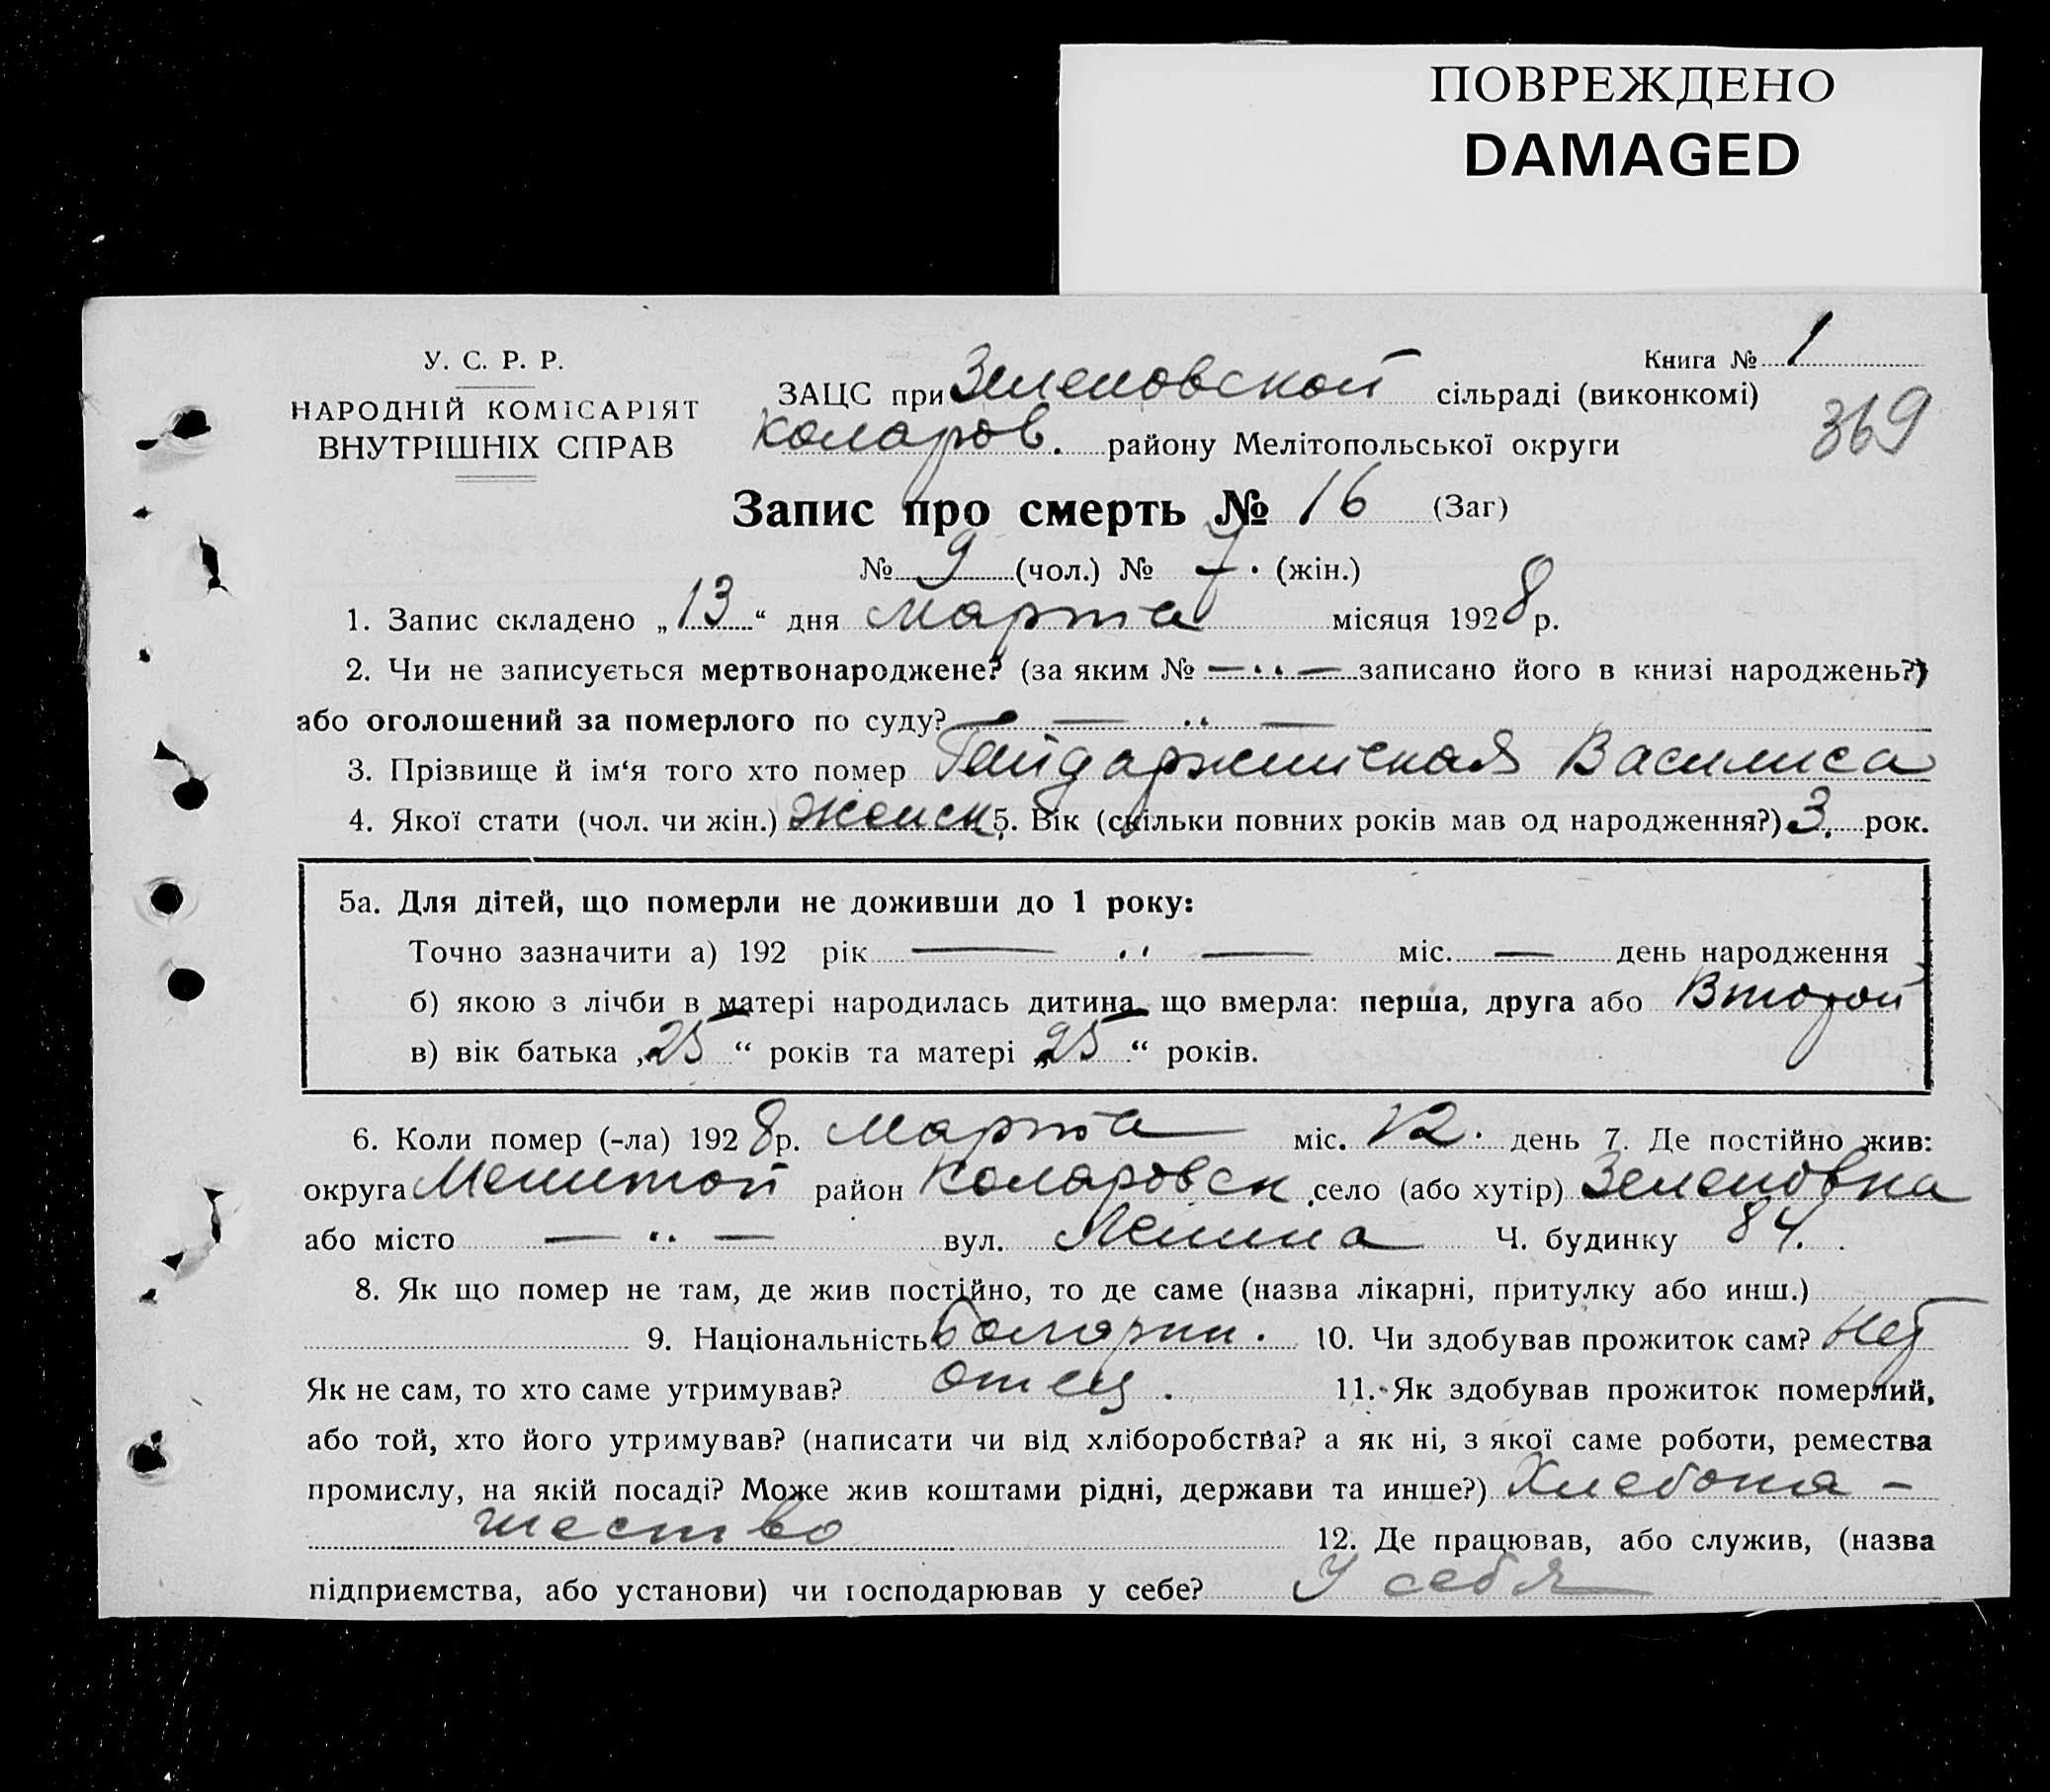 ПОВРЕЖДЕНО
DAMAGED
У. С. Р. Р.
НАРОДНІЙ КОМІСАРІЯТ
ВНУТРІШНІХ СПРАВ
Книга № 1
ЗАЦС при Зеленовской сільраді (виконкомі)
Коларов. району Мелітопольської округи
369
Запис про смерть № 16 (Заг)
№ 9 (чол.) № 7. (жін.)
1. Запис складено „13“ дня марта місяця 1928 р.
2. Чи не записується мертвонароджене? (за яким № — „ — записано його в книзі народжень?)
або оголошений за померлого по суду? — „ —
3. Прізвище й ім‘я того хто помер Гайдаржийская Василиса
4. Якої стати (чол. чи жін.) Женск. 5. Вік (скільки повних років мав од народження?) 3. рок.
5а. Для дітей, що померли не доживши до 1 року:
Точно зазначити а) 192 рік — „ — міс. — день народження
б) якою з лічби в матері народилась дитина, що вмерла: перша, друга або Второй
в) вік батька „25“ років та матері „25“ років.
6. Коли помер (-ла) 1928 р. Марта міс. 12. день 7. Де постійно жив:
округа Мелитоп район Коларовск село (або хутір) Зеленовка
або місто — „ — вул. Ленина Ч. будинку 84.
8. Як що помер не там, де жив постійно, то де саме (назва лікарні, притулку або инш.) —
9. Національність болгарин. 10. Чи здобував прожиток сам? Нет
Як не сам, то хто саме утримував? отец. 11. Як здобував прожиток померлий,
або той, хто його утримував? (написати чи від хліборобства? а як ні, з якої саме роботи, ремества
промислу, на якій посаді? Може жив коштами рідні, держави та инше?) Хлебопа-
шество 12. Де працював, або служив, (назва
підприємства, або установи) чи господарював у себе? У себя